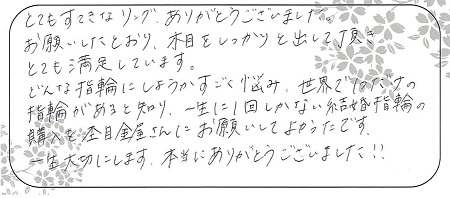 とてもすてきなリング、ありがとうございました。
お願いしたとおり、木目をしっかりと出して頂き
とても満足しています。
どんな指輪にしようかすごく悩み、世界で1つだけの
指輪があると知り、一生に1回しかない結婚指輪の
購入を杢目金屋さんにお願いしてよかったです。
一生大切にします、本当にありがとうございました!!